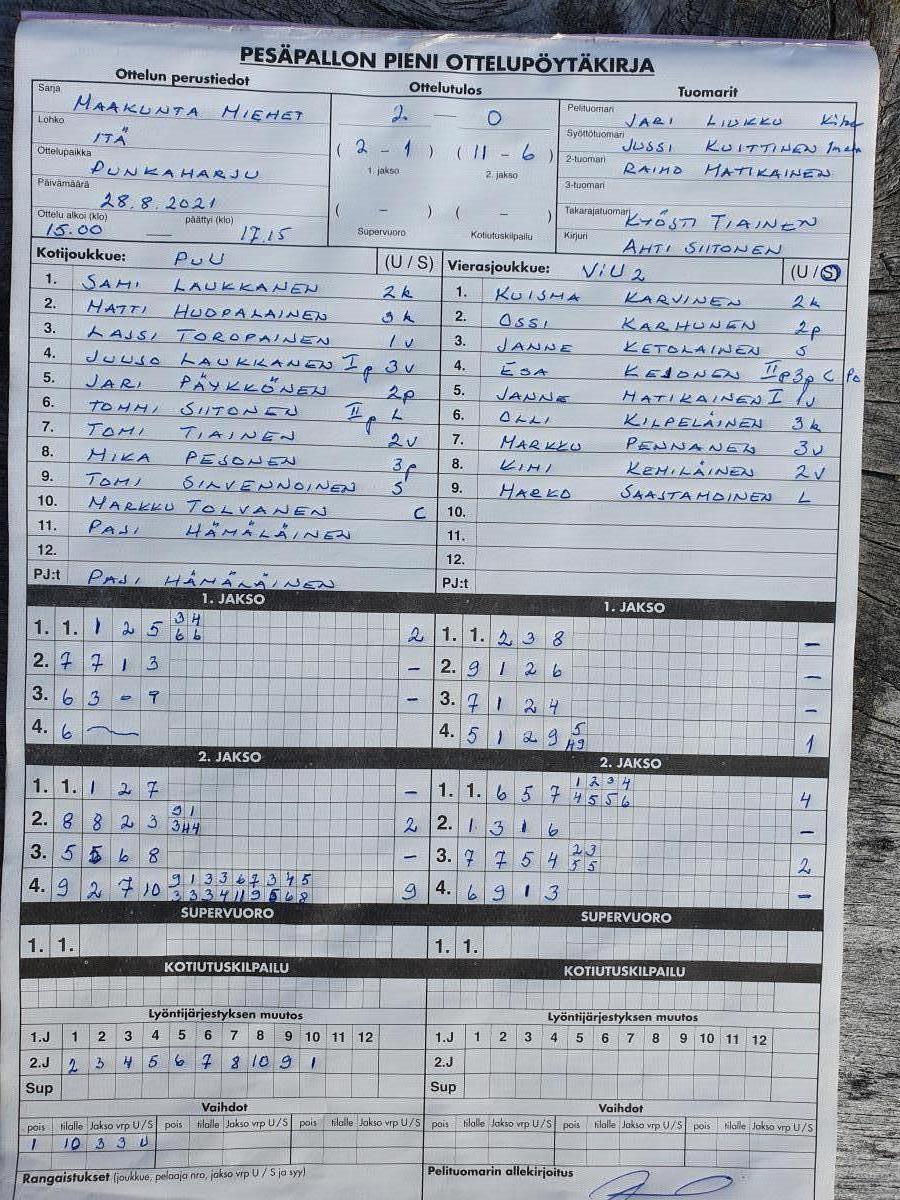 PESÄPALLON PIENI OTTELUPÖYTÄKIRJA
Ottelun perustiedot
Sarja
MAAKUNTA MIEHET
Lohko
ITÄ
Ottelupaikka
PUNKAHARJU
Päivämäärä
28.8.2021
Ottelu alkoi (klo) päättyi (klo)
15.00 — 17.15
Ottelutulos
2 — 0
( 2 - 1 ) ( 11 - 6 )
1. jakso 2. jakso
( - ) ( - )
Supervuoro Kotiutuskilpailu
Tuomarit
Pelituomari
JARI LIUKKO
Syöttötuomari
JUSSI KUITTINEN
2-tuomari
RAIMO MATIKAINEN
3-tuomari
Takarajatuomari
KYÖSTI TIAINEN
Kirjuri
AHTI SIITONEN
Kotijoukkue: PUU (U / S)
1. SAMI LAUKKANEN 2k
2. MATTI HUOPALAINEN 3k
3. LASSI TOROPAINEN 1v
4. JUUSO LAUKKANEN I p 3v
5. JARI PÄYKKÖNEN 2p
6. TOMMI SIITONEN II p L
7. TOMI TIAINEN 2v
8. MIKA PESONEN 3p
9. TOMI SIRVENNOINEN S
10. MARKKU TOLVANEN C
11. PASI HÄMÄLÄINEN
12.
PJ:t PASI HÄMÄLÄINEN
Vierasjoukkue: ViU 2 (U / S)
1. KUISMA KARVINEN 2k
2. OSSI KARHUNEN 2p
3. JANNE KETOLAINEN S
4. ESA KESONEN II p 3p C
5. JANNE MATIKAINEN I 1v
6. OLLI KILPELÄINEN 3k
7. MARKKU PENNANEN 3v
8. KIMI KEMILÄINEN 2v
9. MARKO SAASTAMOINEN L
10.
11.
12.
PJ:t
1. JAKSO
1. 1. 1 2 5 3 4 2
6 6
2. 7 7 1 3 -
3. 6 3 - 9 -
4. 6
1. JAKSO
1. 1. 2 3 8 -
2. 9 1 2 6 -
3. 7 1 2 4 -
4. 5 1 2 9 5 1
49
2. JAKSO
1. 1. 1 2 7 -
2. 8 8 2 3 9 1 2
3 44
3. 5 5 6 8 -
4. 9 2 7 10 9 1 3 3 6 7 3 4 5 9
3 3 3 4 11 9 5 6 8
2. JAKSO
1. 1. 6 5 7 1 2 3 4 4
4 5 5 6
2. 1 3 1 6 -
3. 7 7 5 4 2 3 2
5 5
4. 6 9 1 3 -
SUPERVUORO
1. 1.
SUPERVUORO
1. 1.
KOTIUTUSKILPAILU
KOTIUTUSKILPAILU
Lyöntijärjestyksen muutos
1.J 1 2 3 4 5 6 7 8 9 10 11 12
2.J 2 3 4 5 6 7 8 10 9 1
Sup
Lyöntijärjestyksen muutos
1.J 1 2 3 4 5 6 7 8 9 10 11 12
2.J
Sup
Vaihdot
pois tilalle Jakso vrp U / S pois tilalle Jakso vrp U / S pois tilalle Jakso vrp U / S
1 10 3 3 U
Vaihdot
pois tilalle Jakso vrp U / S pois tilalle Jakso vrp U / S pois tilalle Jakso vrp U / S
Rangaistukset (joukkue, pelaaja nro, jakso vrp U / S ja syy)
Pelituomarin allekirjoitus